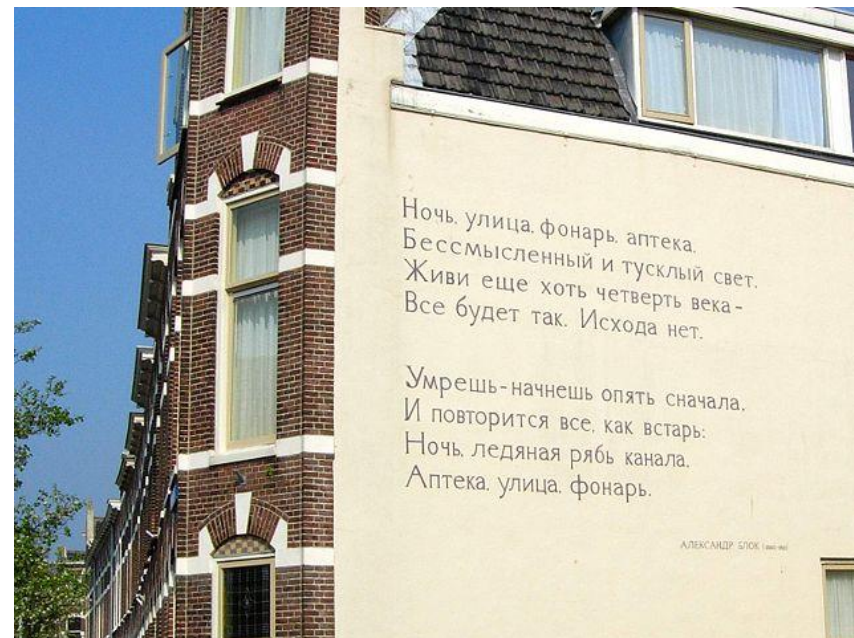 Ночь, улица, фонарь, аптека.
Бессмысленный и тусклый свет.
Живи еще хоть четверть века-
Все будет так. Исхода нет.
Умрешь-начнешь опять сначала,
И повторится все, как встарь:
Ночь, ледяная рябь канала,
Аптека, улица, фонарь.
АЛЕКСАНДР БЛОК